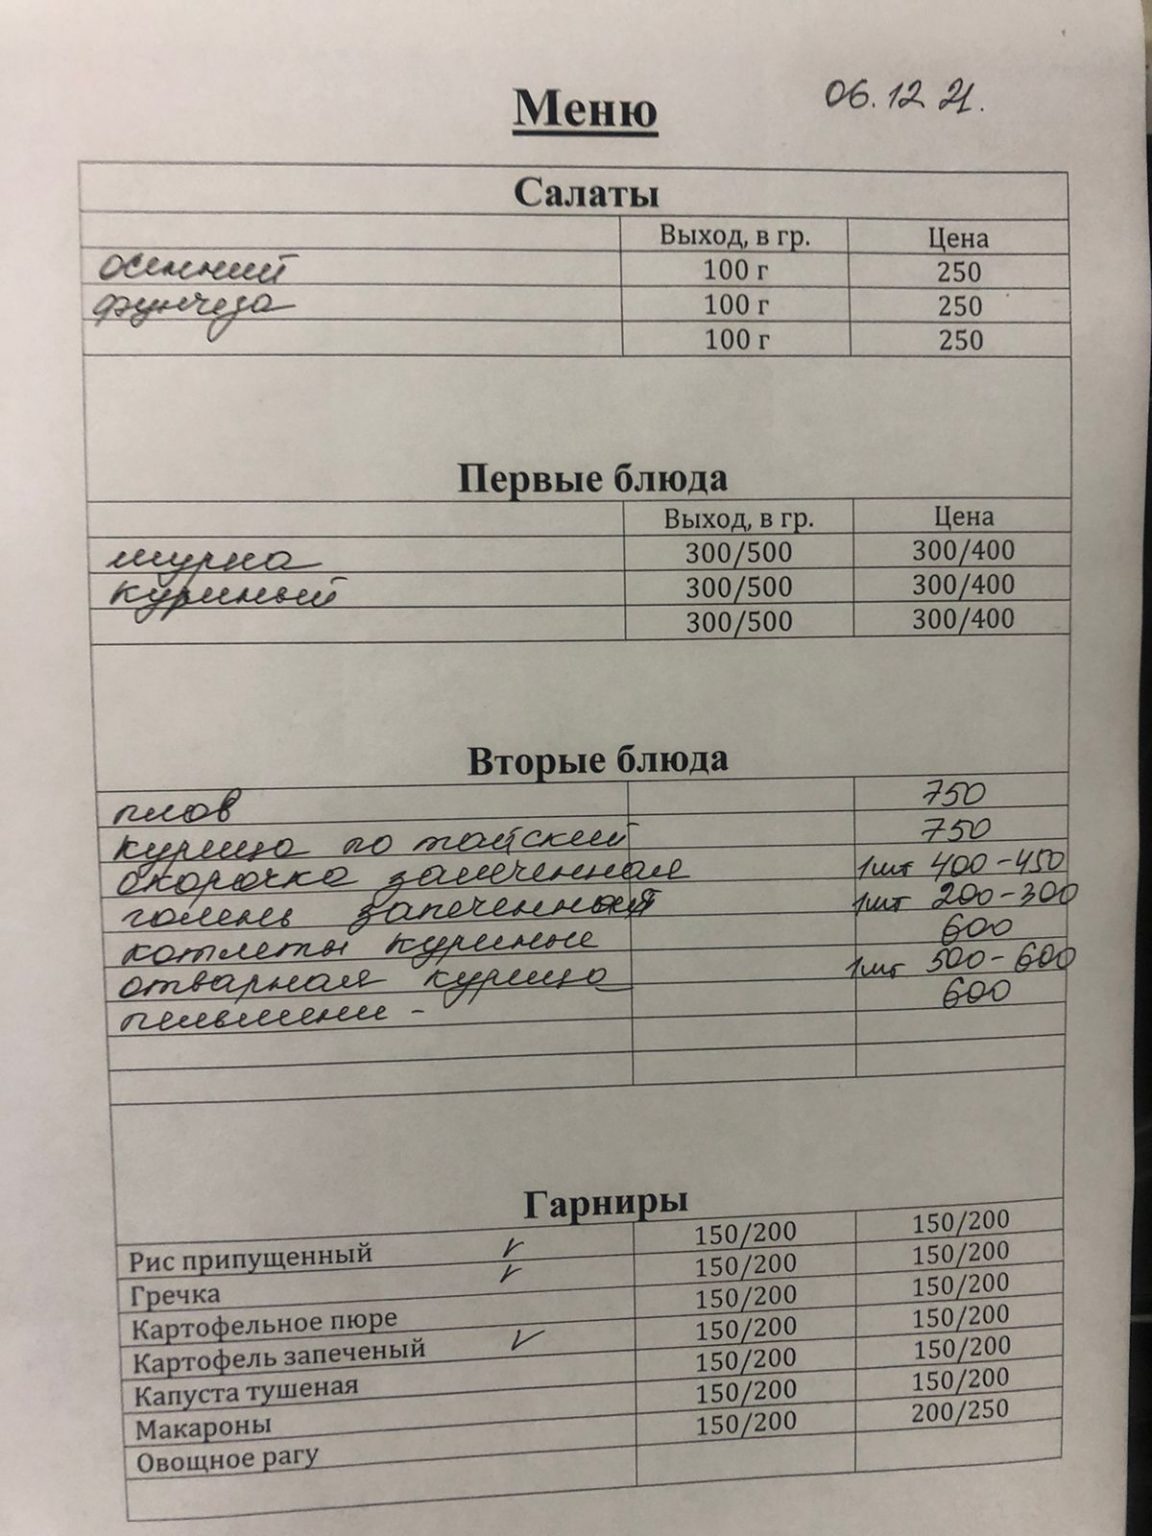 Меню 06.12 21.
Салаты
Выход, в гр. Цена
осенний 100 г 250
фунчеза 100 г 250
100 г 250
Первые блюда
Выход, в гр. Цена
шурпа 300/500 300/400
куриный 300/500 300/400
300/500 300/400
Вторые блюда
плов 750
курица по тайский 750
окорочка запеченная 1шт 400-450
голень запеченный 1шт 200-300
котлеты куриные 600
отварная курица 1шт 500-600
пельмени - 600
Гарниры
Рис припущенный ✓ 150/200 150/200
Гречка ✓ 150/200 150/200
Картофельное пюре 150/200 150/200
Картофель запеченый ✓ 150/200 150/200
Капуста тушеная 150/200 150/200
Макароны 150/200 150/200
Овощное рагу 150/200 200/250